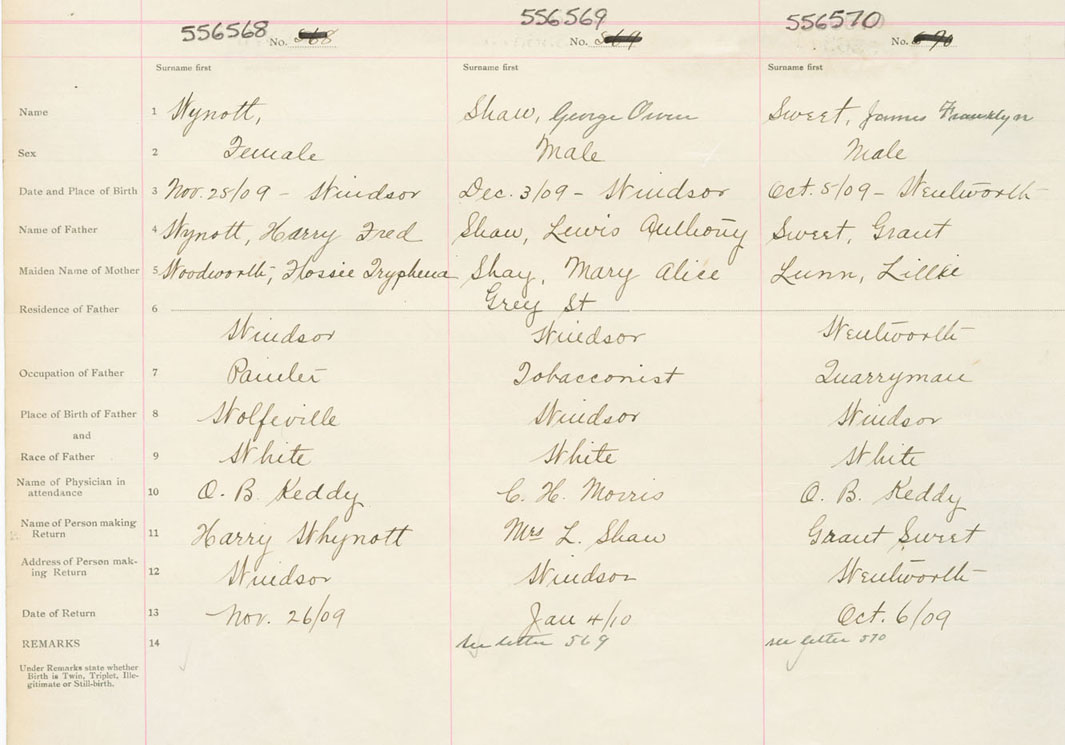 556568 No. 568
556569 No. 569
556570 No. 570
Surname first Surname first Surname first
Name 1 Wynott, Shaw, George Owen Sweet, James Franklyn
Sex 2 Female Male Male
Date and Place of Birth 3 Nov. 25/09 - Windsor Dec. 3/09 - Windsor Oct. 5/09 - Wentworth
Name of Father 4 Wynott, Harry Fred Shaw, Lewis Anthony Sweet, Grant
Maiden Name of Mother 5 Woodworth, Flossie Tryphena Shay, Mary Alice Lunn, Lillie
Residence of Father 6 Grey St
Windsor Windsor Wentworth
Occupation of Father 7 Painter Tobacconist Quarryman
Place of Birth of Father 8 Wolfville Windsor Windsor
and
Race of Father 9 White White White
Name of Physician in
attendance 10 O. B. Keddy C. H. Morris O. B. Keddy
Name of Person making
Return 11 Harry Whynott Mrs L. Shaw Grant Sweet
Address of Person mak-
ing Return 12 Windsor Windsor Wentworth
Date of Return 13 Nov. 26/09 Jan 4/10 Oct. 6/09
REMARKS 14 see letter 569 see letter 570
Under Remarks state whether
Birth is Twin, Triplet, Ille-
gitimate or Still-birth.